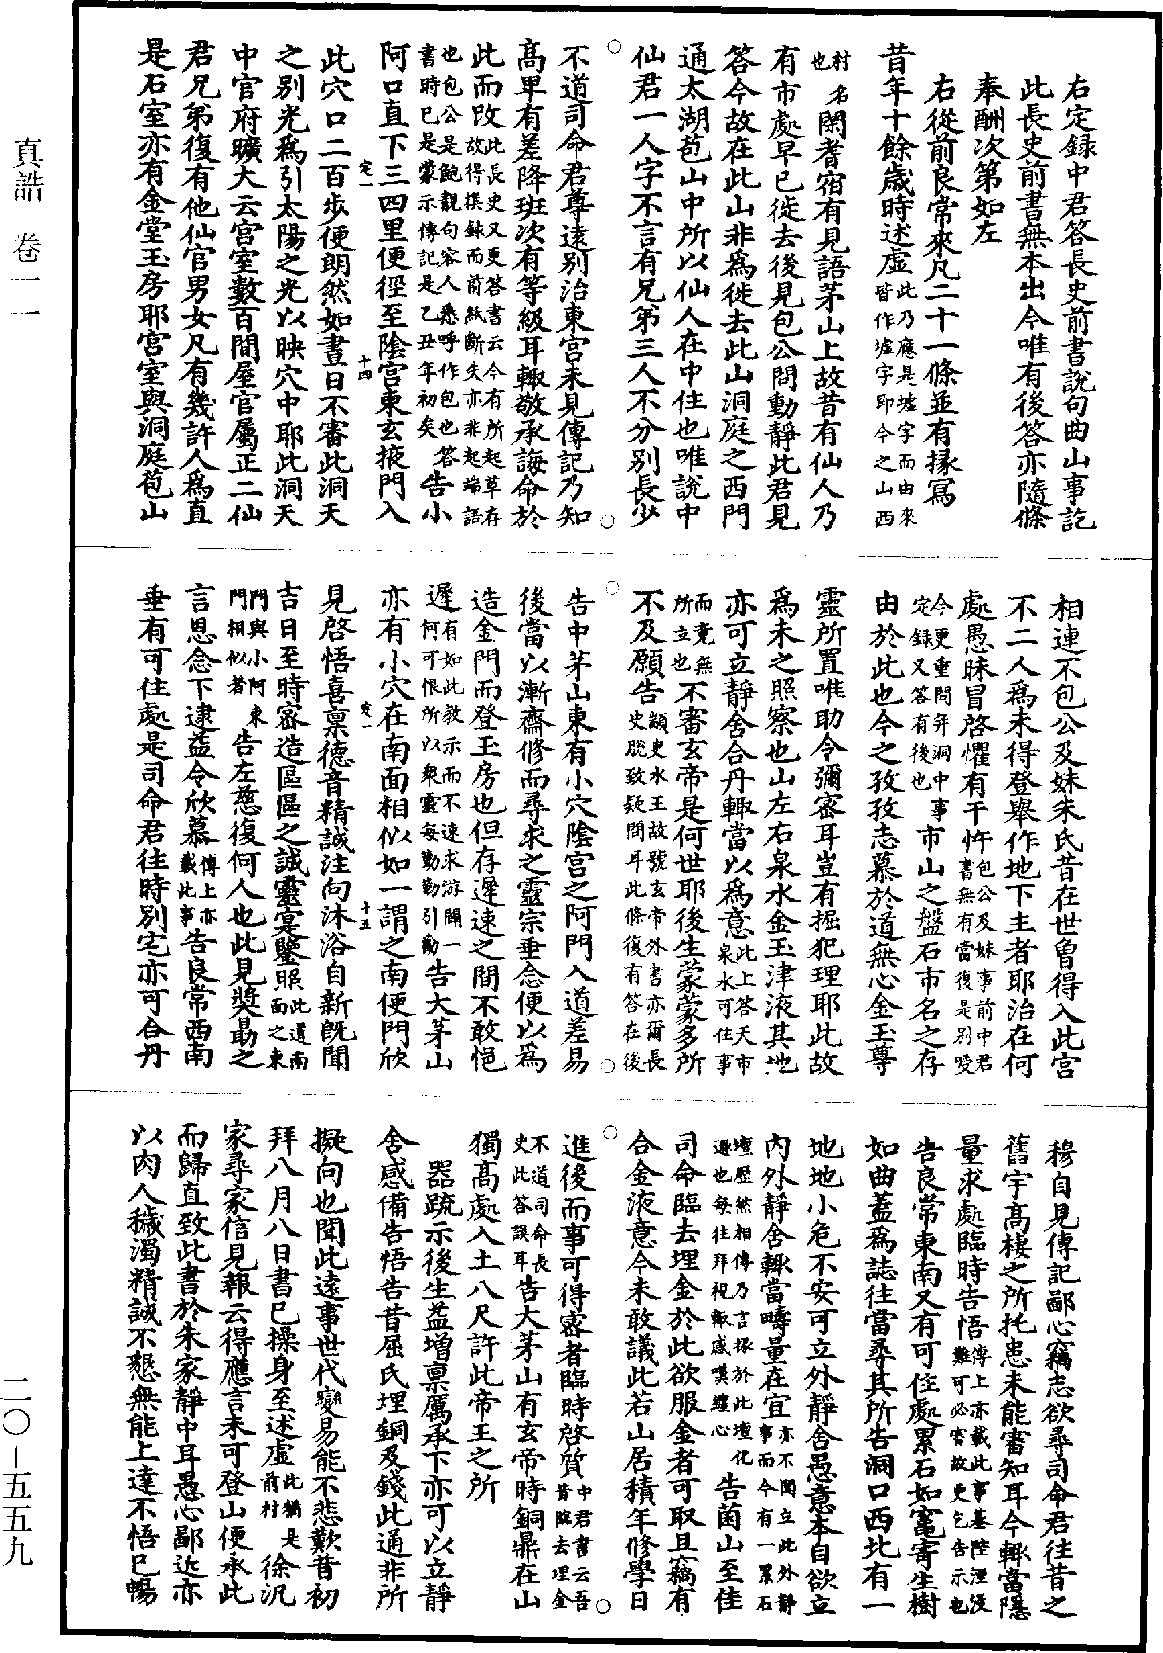 真誥 卷一一
二〇－五五九
右定録中君答長史前書說句曲山事訖
此長史前書無本出今唯有後答亦隨條
奉酬次第如左
右從前良常來凡二十一條並有掾寫
昔年十餘歲時述虛此乃應是墟字而由來皆作墟字即今之山西
村名也閑耆宿有見語茅山上故昔有仙人乃
有市處早已徙去後見包公問動靜此君見
答今故在此山非爲徙去此山洞庭之西門
通太湖苞山中所以仙人在中住也唯說中
仙君一人字不言有兄弟三人不分別長少
不道司命君尊遠別治東宮未見傳記乃知
高卑有差降班次有等級耳輒敬承誨命於
此而改此長史又更答書云今有所起草存故得撰録而前紙斷失亦非起端語
也包公是鮑靚句容人悉呼作包也書時已是蒙示傳記是乙丑年初矣答告小
阿口直下三四里便徑至陰宮東玄掖門入
定一 十四
此穴口二百步便朗然如晝日不審此洞天
之別光爲引太陽之光以映穴中耶此洞天
中官府曠大云宮室數百間屋官屬正二仙
君兄弟復有他仙官男女凡有幾許人爲直
是石室亦有金堂玉房耶宮室與洞庭苞山
相連不包公及妹朱氏昔在世曾得入此宮
不二人爲未得登舉作地下主者耶治在何
處愚昧冒啓懼有干忤包公及妹事前中君書無有當復是別受
今更重問并洞中事定録又答有後也市山之盤石市名之存
由於此也今之孜孜志慕於道無心金玉尊
靈所置唯助令彌密耳豈有掘犯理耶此故
爲未之照察也山左右泉水金玉津液其地
亦可立靜舍合丹輒當以爲意此上答天市泉水可住事
而竟無所立也不審玄帝是何世耶後生蒙蒙多所
不及願告顓史水王故號玄帝外書亦爾長史脱致疑問耳此條復有答在後
告中茅山東有小穴陰宮之阿門入道差易
後當以漸齋修而尋求之靈宗垂念便以爲
造金門而登玉房也但存遲速之間不敢悒
遲有如此敎示而不速求游闚一何可恨所以衆靈每勤勤引勸告大茅山
亦有小穴在南面相似如一謂之南便門欣
定一 十五
見啓悟喜稟德音精誠注向沐浴自新旣聞
吉日至時審造區區之誠靈寔鑒照此道南面之東
門與小阿東門相似者告左慈復何人也此見奬勗之
言思念下逮益令欣慕傳上亦載此事告良常西南
垂有可住處是司命君往時別宅亦可合丹
穆自見傳記鄙心竊志欲尋司命君往昔之
舊宇高棲之所托恚未能審知耳今輒當隱
量求處臨時告悟傳上亦載此事基陛湮沒難可必審故更乞告示也
告良常東南又有可住處累石如竈寄生樹
如曲蓋爲誌往當尋其所告洞口西北有一
地地小危不安可立外靜舍愚意本自欲立
內外靜舍輒當疇量在宜亦不聞立此外靜事而今有一累石
壇歷然相傳乃言掾於此壇化遯也每往拜祝輒感嘆纏心告菌山至佳
司命臨去埋金於此欲服金者可取且竊有
合金液意今未敢議此若山居積年修學日
進後而事可得密者臨時啓質中君書云吾昔臨去埋金
不道司命長史此答誤耳告大茅山有玄帝時銅鼎在山
獨高處入土八尺許此帝王之所
器疏示後生益增稟厲承下亦可以立靜
舍感備告悟告昔屈氏埋銅及錢此通非所
擬向也聞此遠事世代變易能不悲歎昔初
拜八月八日書已操身至述虛此猶是前村徐汎
家尋家信見報云得應言未可登山便承此
而歸直致此書於朱家靜中耳愚心鄙近亦
以肉人穢濁精誠不懇無能上達不悟已暢